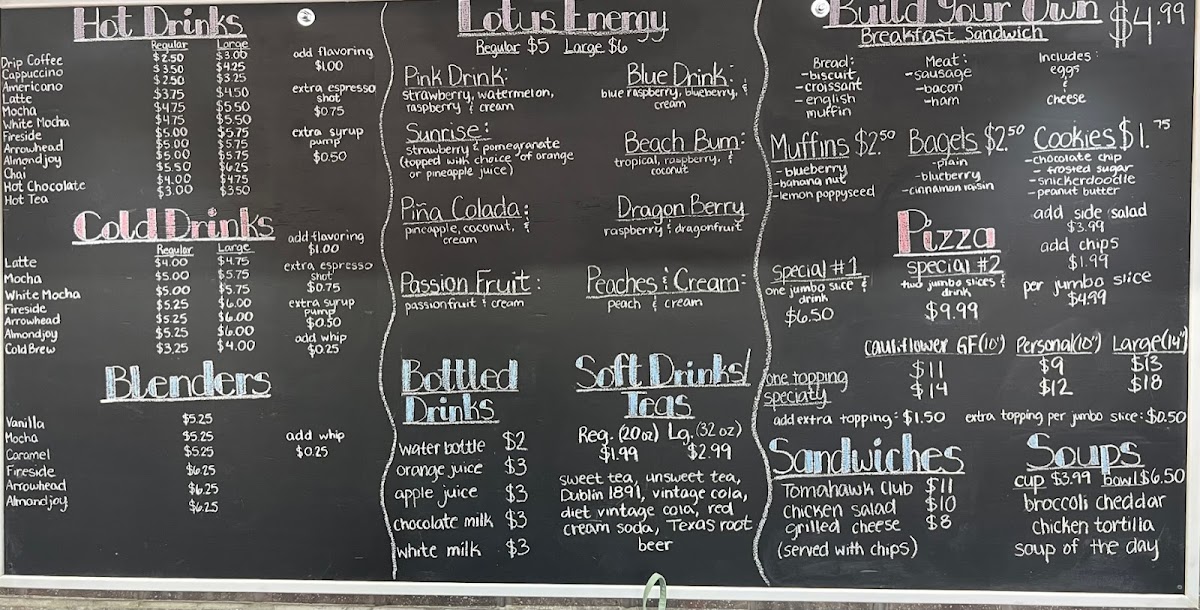 Hot Drinks
Regular Large
Drip Coffee $2.50 $3.00
Cappuccino $3.50 $4.25
Americano $2.50 $3.25
Latte $3.75 $4.50
Mocha $4.75 $5.50
White Mocha $4.75 $5.50
Fireside $5.00 $5.75
Arrowhead $5.00 $5.75
Almondjoy $5.00 $5.75
Chai $5.50 $6.25
Hot Chocolate $4.00 $4.75
Hot Tea $3.00 $3.50
add flavoring
$1.00
extra espresso
shot
$0.75
extra syrup
pump
$0.50
Cold Drinks
Regular Large
Latte $4.00 $4.75
Mocha $5.00 $5.75
White Mocha $5.00 $5.75
Fireside $5.25 $6.00
Arrowhead $5.25 $6.00
Almondjoy $5.25 $6.00
Cold Brew $3.25 $4.00
add flavoring
$1.00
extra espresso
shot
$0.75
extra syrup
pump
$0.50
add whip
$0.25
Blenders
Vanilla $5.25
Mocha $5.25
Caramel $5.25
Fireside $6.25
Arrowhead $6.25
Almondjoy $6.25
add whip
$0.25
Lotus Energy
Regular $5 Large $6
Pink Drink:
strawberry, watermelon,
raspberry & cream
Blue Drink:
blue raspberry, blueberry, &
cream
Sunrise:
strawberry & pomegranate
(topped with choice of orange
or pineapple juice)
Beach Bum:
tropical, raspberry, &
coconut
Piña Colada:
pineapple, coconut, &
cream
Dragon Berry
raspberry & dragonfruit
Passion Fruit:
passionfruit & cream
Peaches & Cream:
peach & cream
Bottled
Drinks
water bottle $2
orange juice $3
apple juice $3
chocolate milk $3
white milk $3
Soft Drinks/
Teas
Reg. (20 oz) Lg. (32 oz)
$1.99 $2.99
sweet tea, unsweet tea,
Dublin 1891, vintage cola,
diet vintage cola, red
cream soda, Texas root
beer
Build Your Own $4.99
Breakfast Sandwich
Bread:
-biscuit
-croissant
-english
muffin
Meat:
-sausage
-bacon
-ham
Includes:
eggs
&
cheese
Muffins $2.50
-blueberry
-banana nut
-lemon poppyseed
Bagels $2.50
-plain
-blueberry
-cinnamon raisin
Cookies $1.75
-chocolate chip
- frosted sugar
-snickerdoodle
-peanut butter
Pizza
special #1
one jumbo slice &
drink
$6.50
special #2
two jumbo slices &
drink
$9.99
add side salad
$3.99
add chips
$1.99
per jumbo slice
$4.99
cauliflower GF(10") Personal(10") Large(14")
one topping $11 $9 $13
specialty $14 $12 $18
add extra topping: $1.50 extra topping per jumbo slice: $0.50
Sandwiches
Tomahawk Club $11
chicken salad $10
grilled cheese $8
(served with chips)
Soups
cup $3.99 bowl $6.50
broccoli cheddar
chicken tortilla
soup of the day